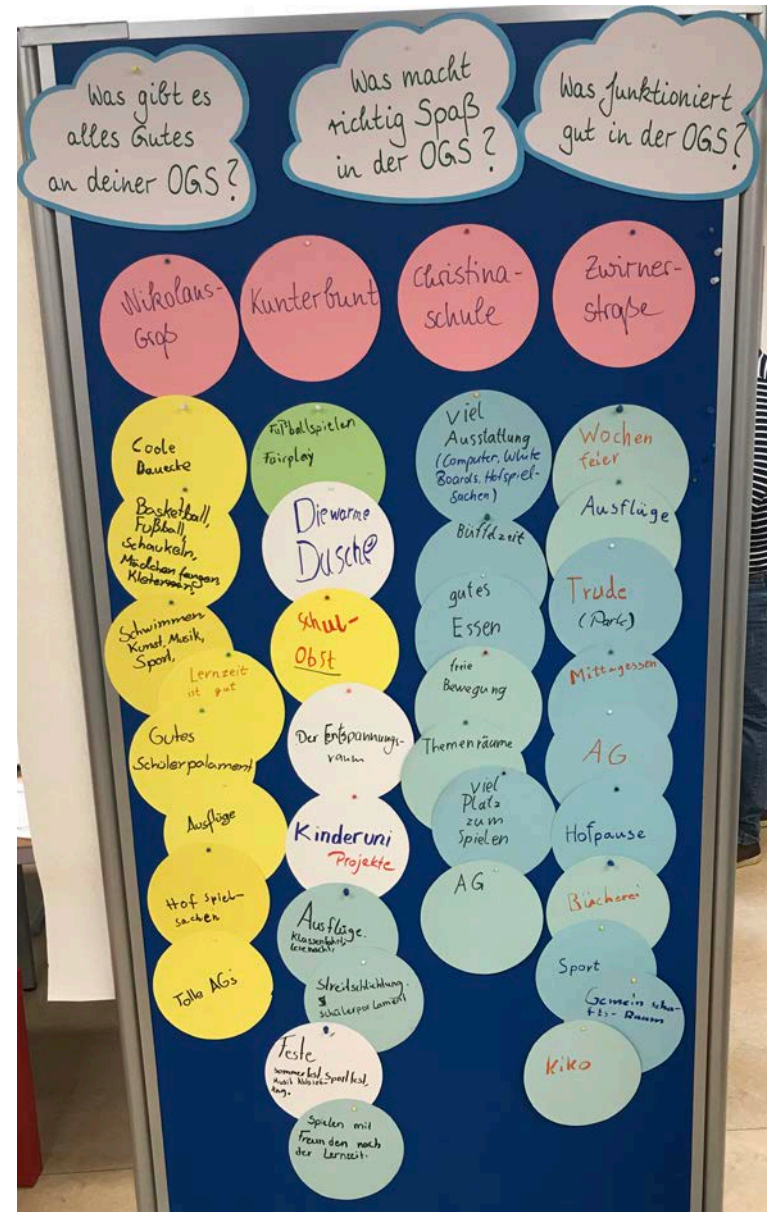 Was gibt es
alles Gutes
an deiner OGS?
Was macht
richtig Spaß
in der OGS?
Was funktioniert
gut in der OGS?
Nikolaus-
Groß
Coole
Bauecke
Basketball,
Fußball,
Schaukeln,
Mädchen fangen
Schwimmen
Kunst, Musik,
Sport,
Lernzeit
ist gut
Gutes
Schülerpalament
Ausflüge
Hof Spiel-
sachen
Tolle AGs
Kunterbunt
Fußballspielen
Fairplay
Die warme
Dusche
Schul-
Obst
Der Entspannungs-
raum
Kinderuni
Projekte
Ausflüge.
Klassenfahrt,
Lesenacht.
Streitschlichtung.
Schülerparlament
Feste
Sommerfest, Sportfest,
Musik
tag.
Spielen mit
Freunden nach
der Lernzeit.
Christina-
schule
Viel
Ausstattung
(Computer, White
Boards, Hofspiel-
sachen)
Büffdzeit
gutes
Essen
freie
Bewegung
Themenräume
viel
Platz
zum
Spielen
AG
Zwirner-
straße
Wochen
feier
Ausflüge
Trude
(Park)
Mittagessen
AG
Hofpause
Bücherei
Sport
Gemein scha-
fts-Raum
Kiko